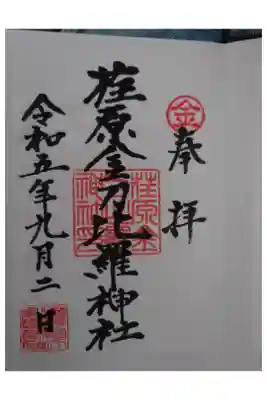 金
奉拝
荏原金刀比羅神社
荏原金
神社
令和五年九月二日